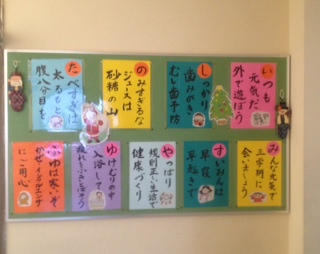 いつも
元気だ
外で遊ぼう
しっかり
歯みがき
むし歯予防
のみすぎるな
ジュースは
砂糖の山
たべすぎは
太るもと
腹八分目を
みんな元気で
三学期に
会いましょう
すいみんは
早寝
早起きで
やっぱり
規則正しい生活で
健康づくり
ゆけむりの中
入浴して
ふゆは寒いぞ
かぜ・インフルエンザ
にご用心